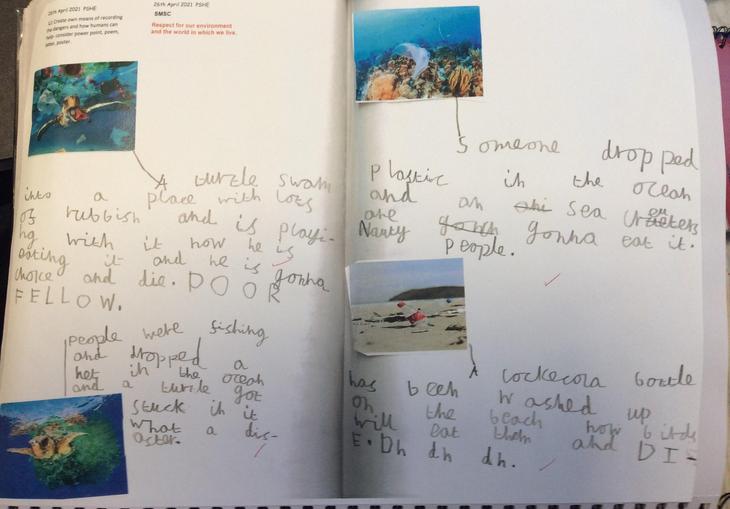 26th April 2021 PSHE
L2 Create own means of recording
the dangers and how humans can
help- consider power point, poem,
letter, poster.
26th April 2021 PSHE
SMSC
Respect for our environment
and the world in which we live.
A turtle swam
into a place with lots
of rubbish and is playi-
ng with it now he is
eating it and he is gonna
choice and die. POOR
FELLOW.
people were fishing
and dropped a
net in the ocean
and a turtle got
stuck in it
what a dis-
aster.
Someone dropped
plastic in the ocean
and an sea
are gonna eat it.
Nanty people.
A
has been cockecola bottle
on washed up
the beach now birds
will eat them and DI-
E. Dh dh dh.